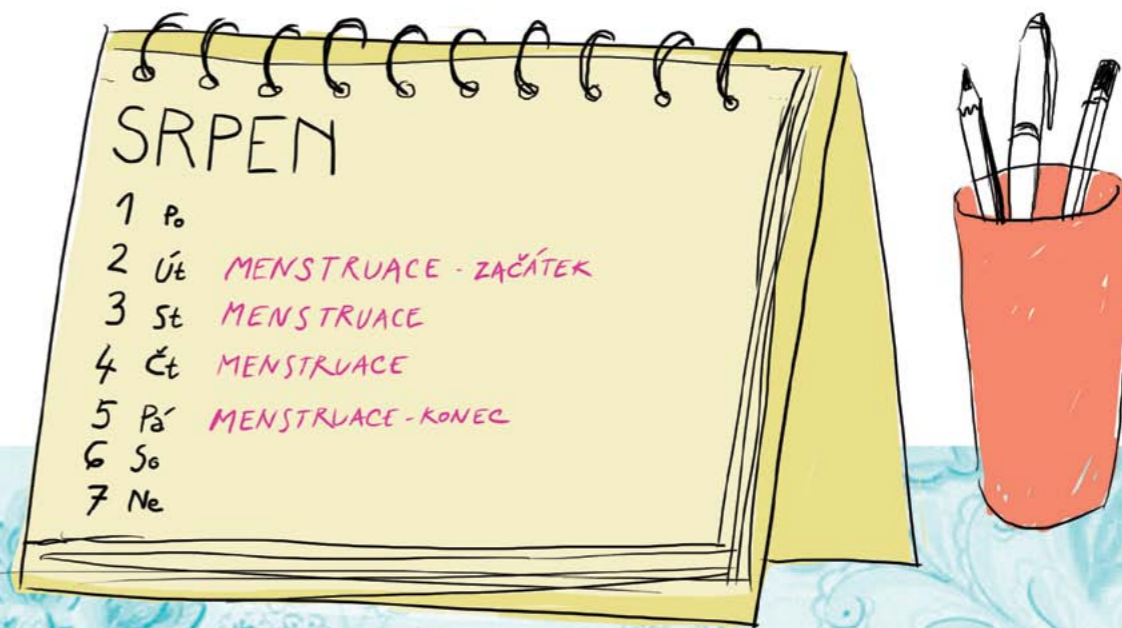 SRPEN
1 Po
2 Út MENSTRUACE - ZAČÁTEK
3 St MENSTRUACE
4 Čt MENSTRUACE
5 Pá MENSTRUACE - KONEC
6 So
7 Ne